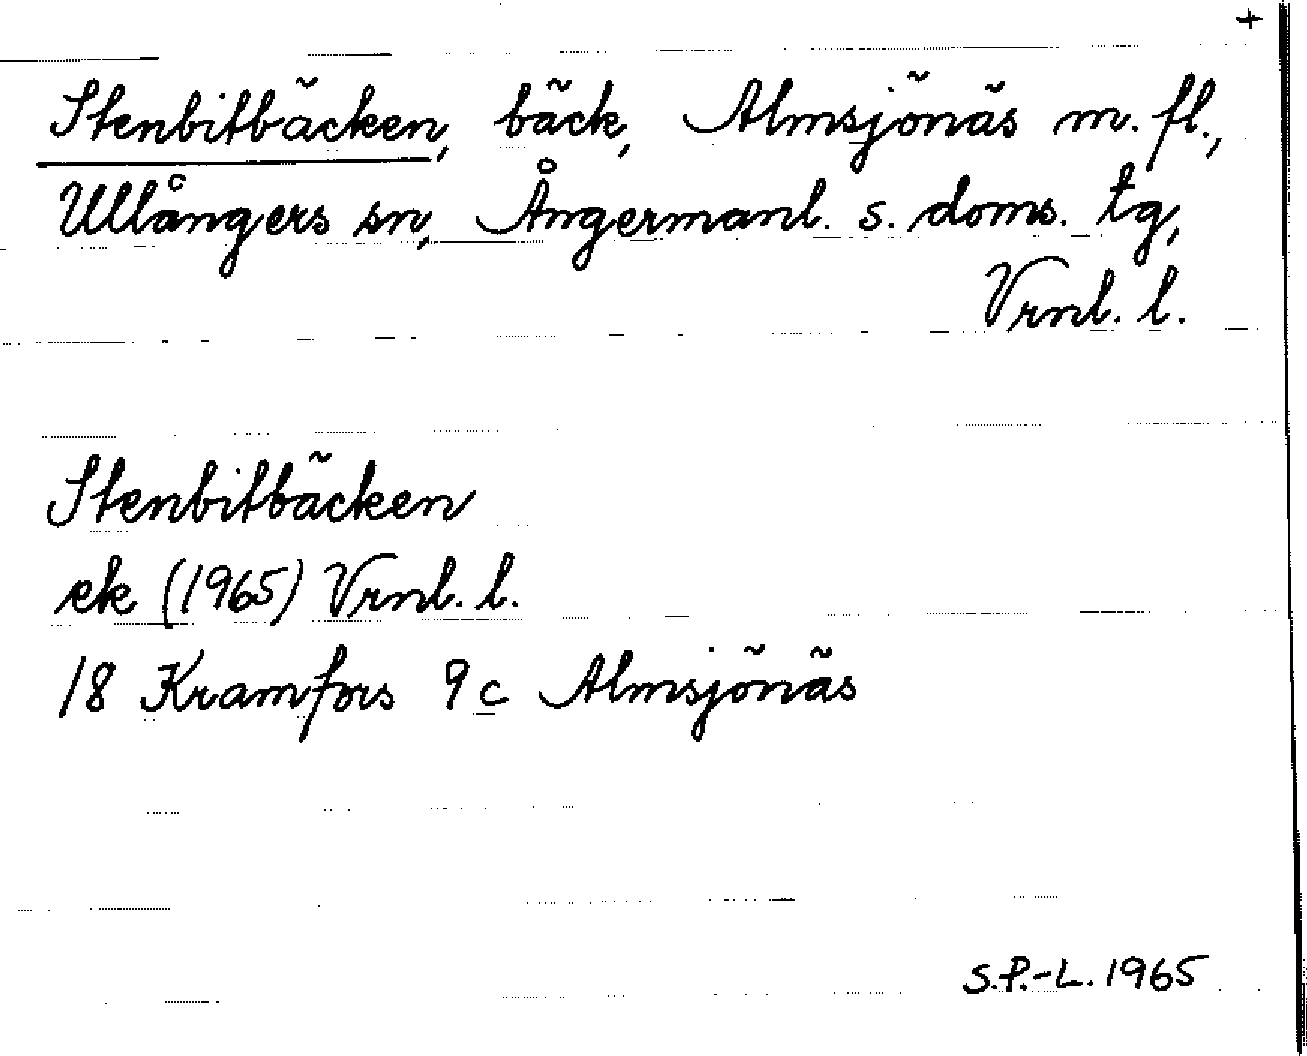 +
Stenbitbäcken, bäck, Almsjönäs m. fl.,
Ullångers sn, Ångermanl. s. doms. tg,
Vrnl. l.
Stenbitbäcken
ek (1965) Vrnl. l.
18 Kramfors 9c Almsjönäs
S.P.-L. 1965